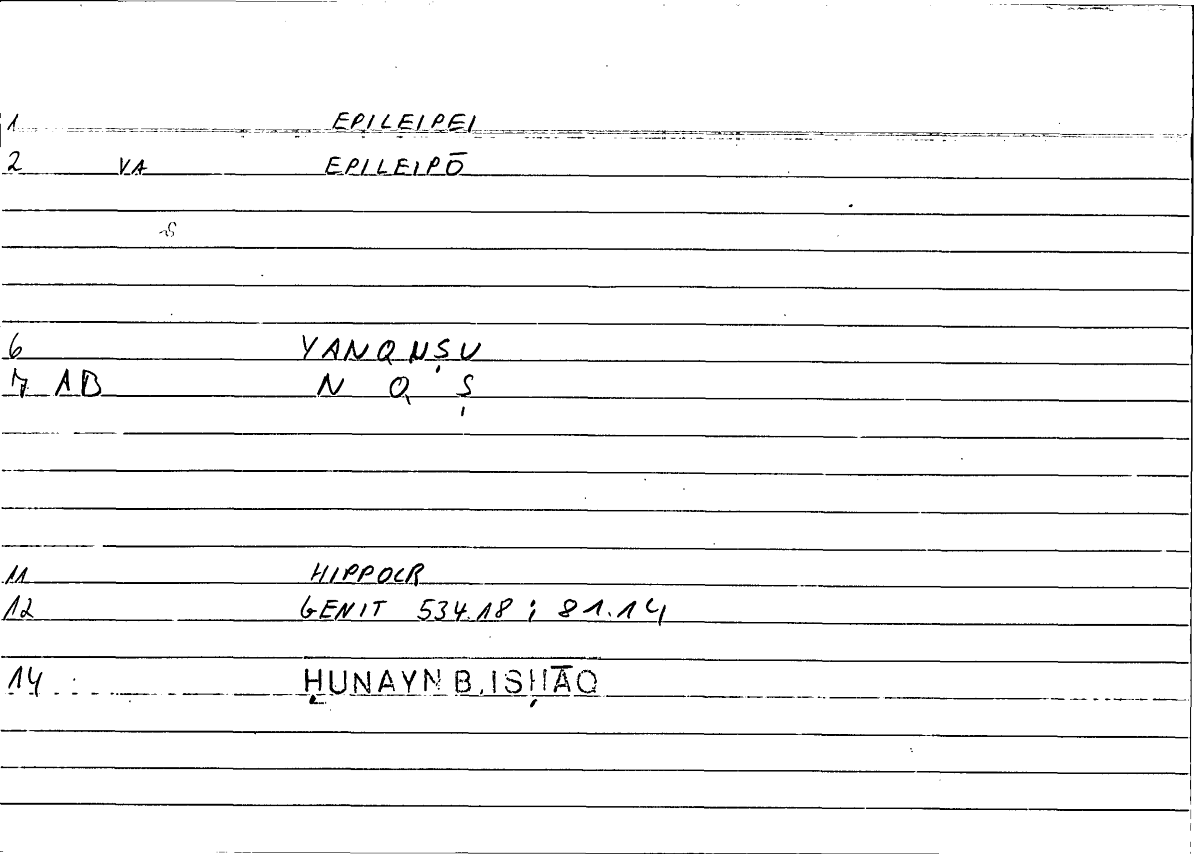 1 EPILEIPEI
2 VA EPILEIPŌ
6 YANQUṢU
7 AB N Q Ṣ
11 HIPPOCR
12 GENIT 534.18 ; 81.14
14 ḤUNAYN B. ISḤĀQ